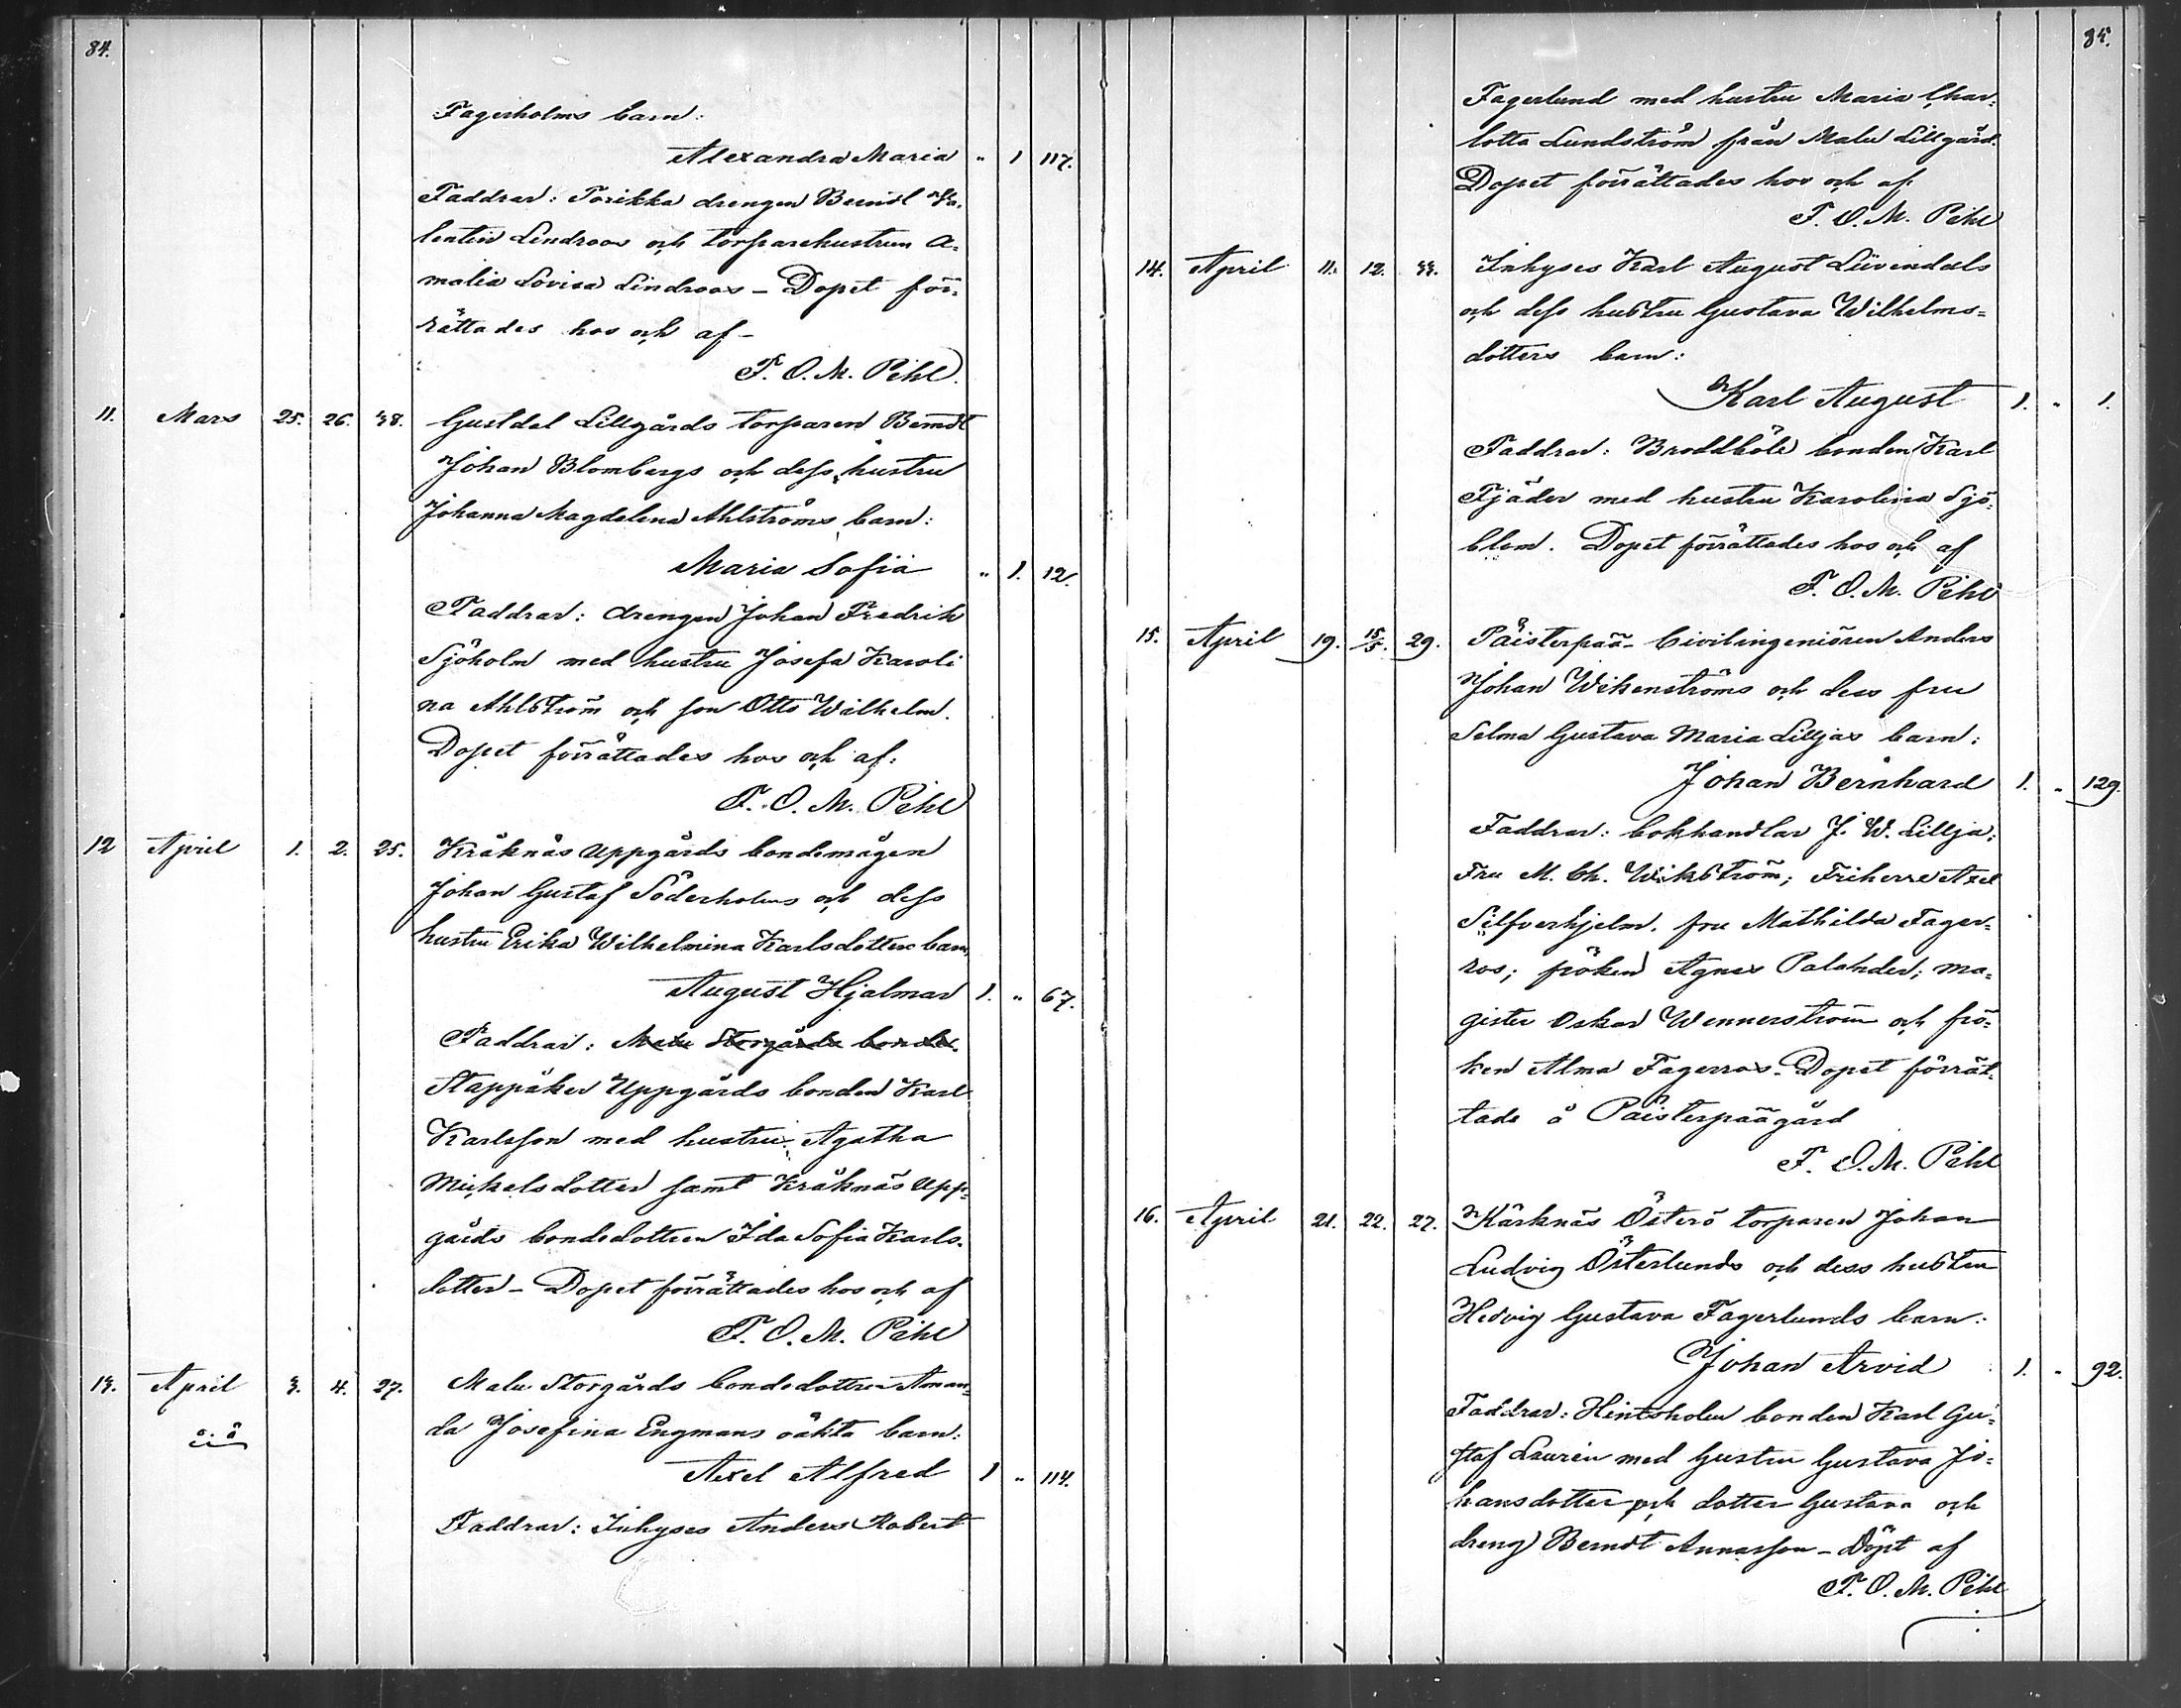 84.
Fagerholms barn:
Alexandra Maria " 1 117.
Faddrar: Torikka drengen Berndt Va-
lentin Lindroos och torparehustrun A-
malia Lovisa Lindroos – Dopet för-
rättades hos och af –
F. O. M. Pihl.
11. Mars 25. 26. 38. Gustdal Lillgårds torparen Berndt
Johan Blombergs och dess hustru
Johanna Magdelena Ahlströms barn:
Maria Sofia " 1. 12.
Faddrar: drengen Johan Fredrik
Sjöholm med hustru Josefa Karoli
na Ahlström och son Otto Wilhelm.
Dopet förrättades hos och af:
F. O. M. Pihl
12 April 1. 2. 25. Kråknäs Uppgårds bondemågen
Johan Gustaf Söderholms och dess
hustru Erika Wilhelmina Karlsdotters barn,
August Hjalmar 1. " 67.
Faddrar: Malu Storgårds bonde
Stappåker Uppgårds bonden Karl
Karlsson med hustru Agatha
Mickelsdotter samt Kråknäs Upp-
gårds bondedottren Ida Sofia Karls-
dotter – Dopet förrättades hos och af
F. O. M. Pihl
13. April 3. 4. 27. Malu Storgårds bondedottren Aman-
da Josefina Engmans oäkta barn:
Axel Alfred 1 " 114.
Faddrar: Inhyses Anders Robert
85.
Fagerlund med hustru Maria Char-
lotta Lundström från Malu Lillgård.
Dopet förrättades hos och af
F. O. M. Pihl
14. April 11. 12. 33. Inhyses Karl August Lüvendals
och dess hustru Gustava Wilhelms-
dotters barn:
Karl August 1. " 1.
Faddrar: Broddböle bonden Karl
Tjäder med hustru Karolina Sjö-
blom. Dopet förrättades hos och af
F. O. M. Pihl
15. April 19. 15/5. 29. Päisterpää Civilingeniören Anders
Johan Wikenströms och dess fru
Selma Gustava Maria Lilljas barn:
Johan Bernhard 1. " 129.
Faddrar: bokhandlar J. W. Lillja;
Fru M. Ch. Wikström; Friherre Axel
Silfverhjelm. fru Mathilda Fager-
ros; fröken Agnes Palander; ma-
gister Oskar Wennerström och frö-
ken Alma Fagerros. Dopet förrät-
tads å Päisterpäägård
F. O. M. Pihl
16. April 21. 22. 27. Kärknäs Österö torparen Johan
Ludvig Österlunds och dess hustru
Hedvig Gustava Fagerlunds barn:
Johan Arvid 1. " 92.
Faddrar: Hintsholm bonden Karl Gu-
staf Lauren med hustru Gustava Jo-
hansdotter och dotter Gustava och
dreng Berndt Annasson – Döpt af
F. O. M. Pihl